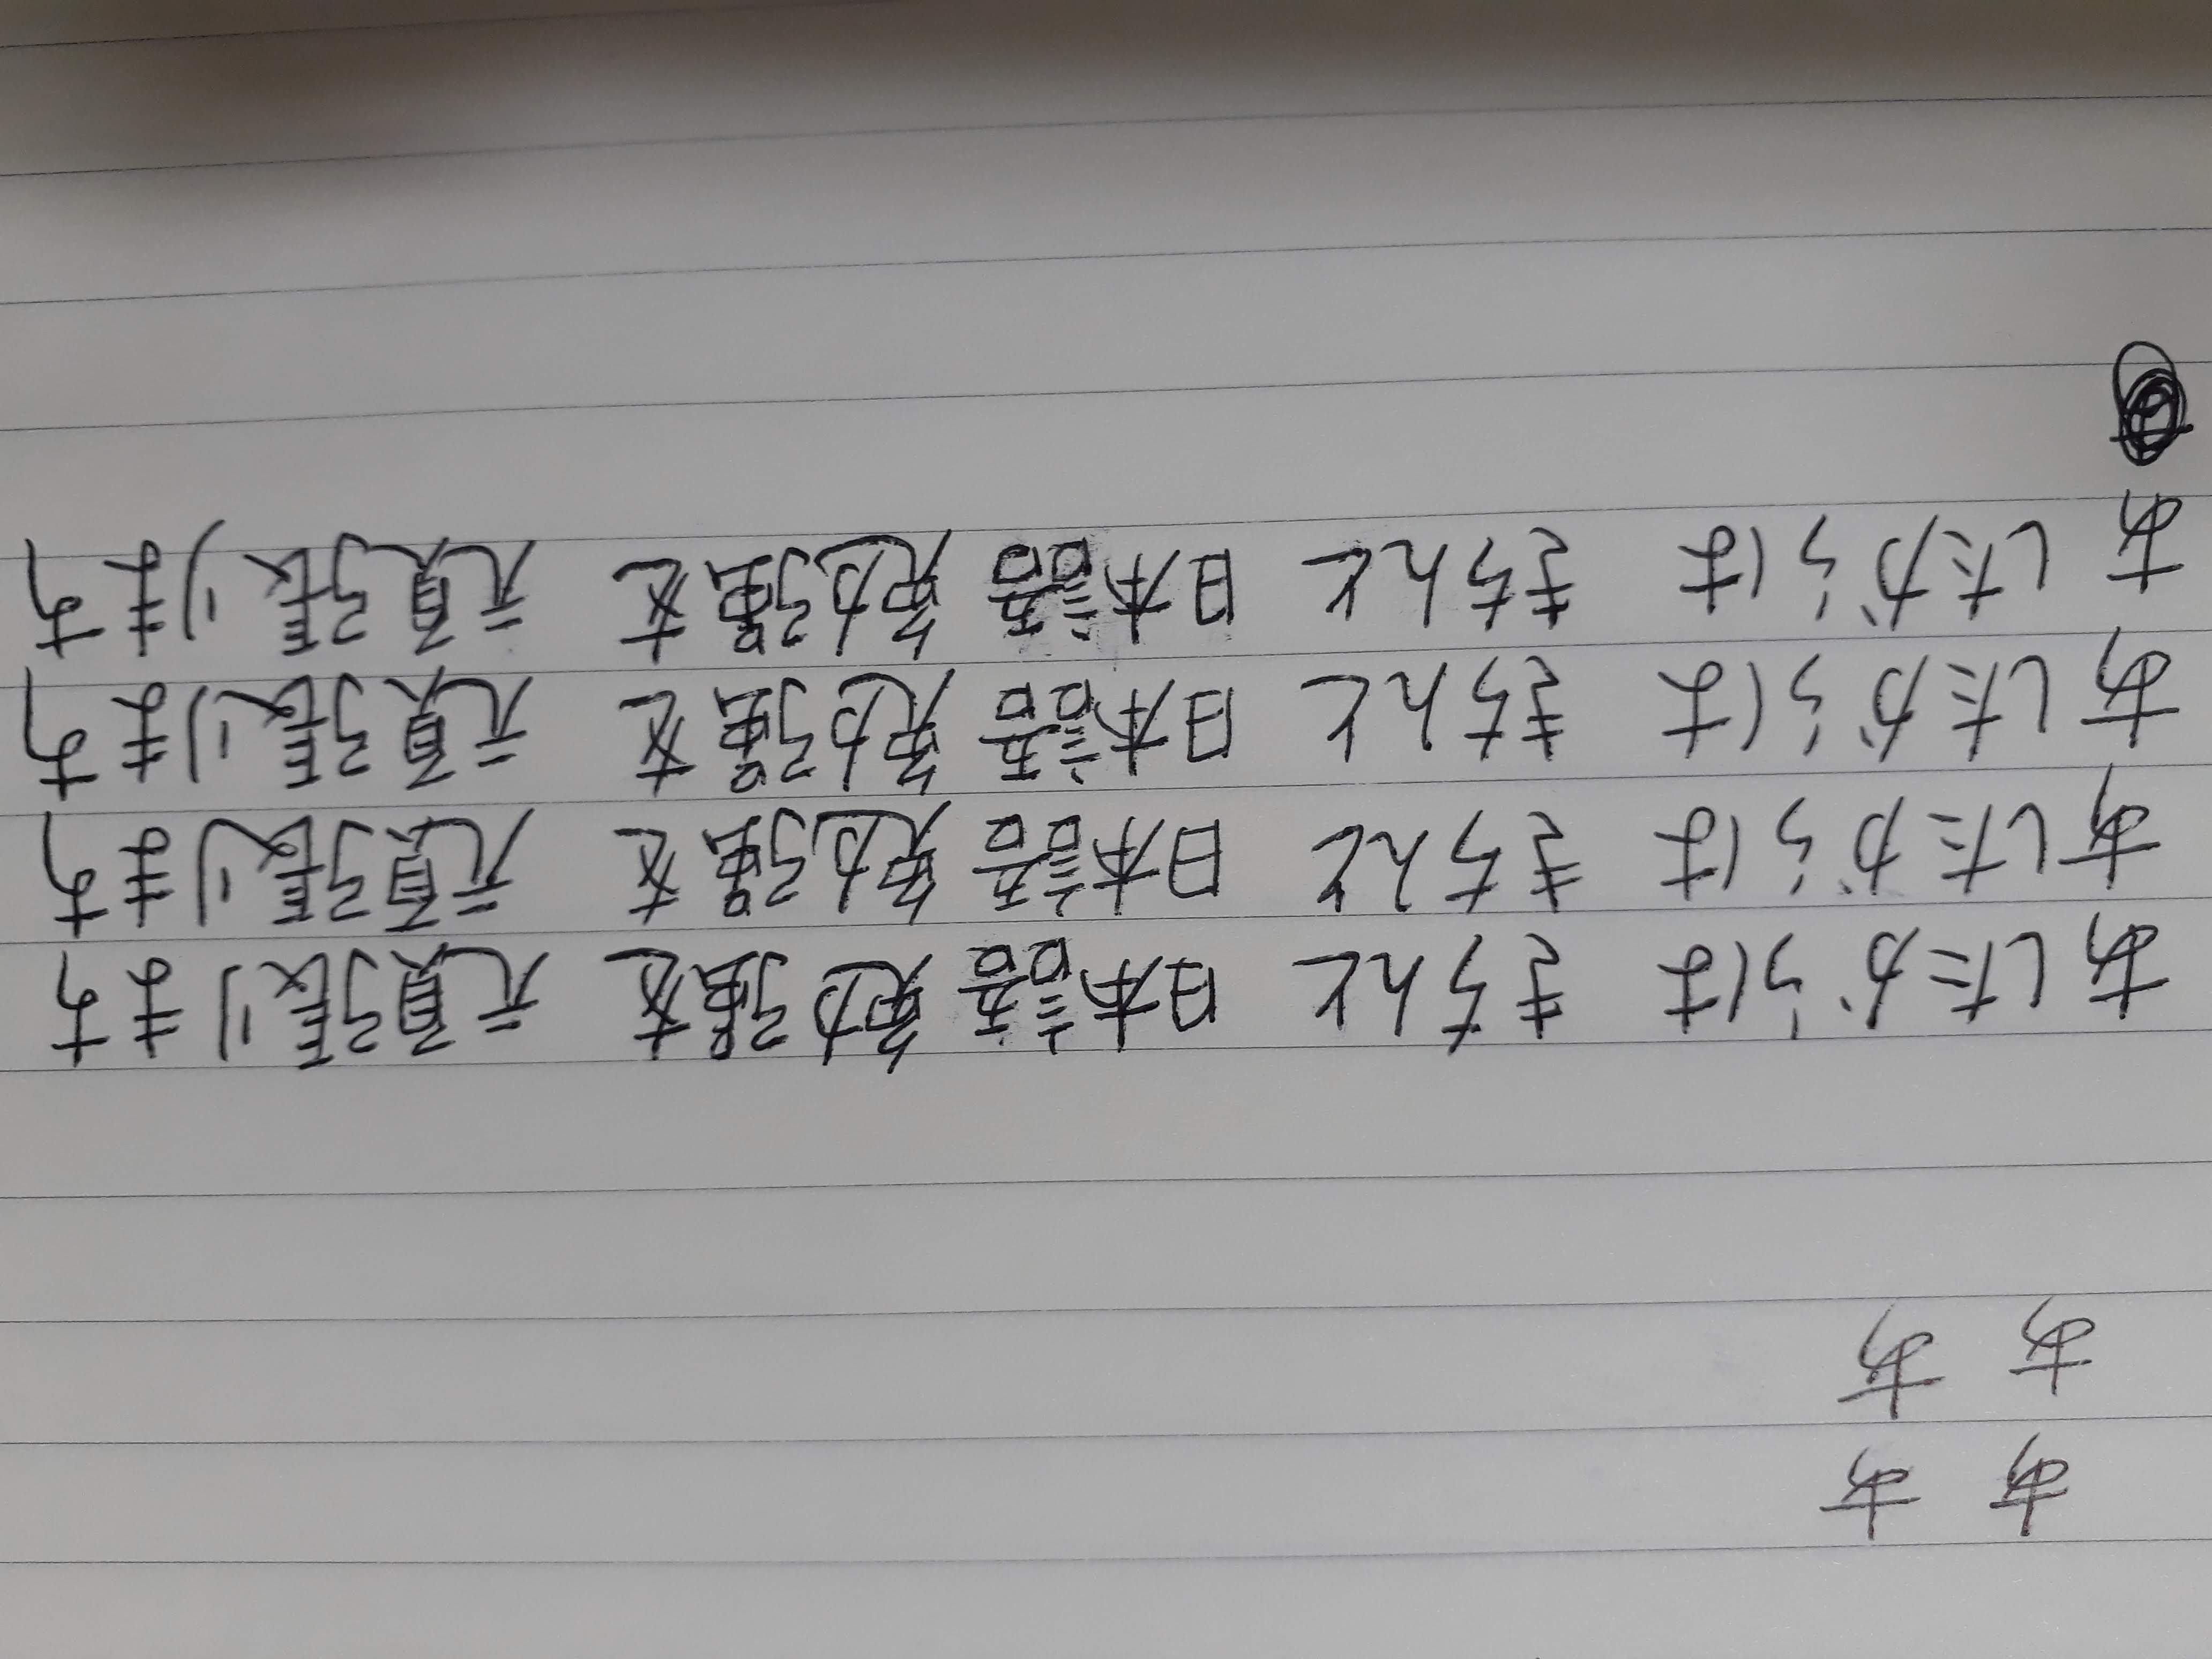 あ あ
あ あ
あしたからは きちんと 日本語勉強を 頑張ります
あしたからは きちんと 日本語勉強を 頑張ります
あしたからは きちんと 日本語勉強を 頑張ります
あしたからは きちんと 日本語勉強を 頑張ります